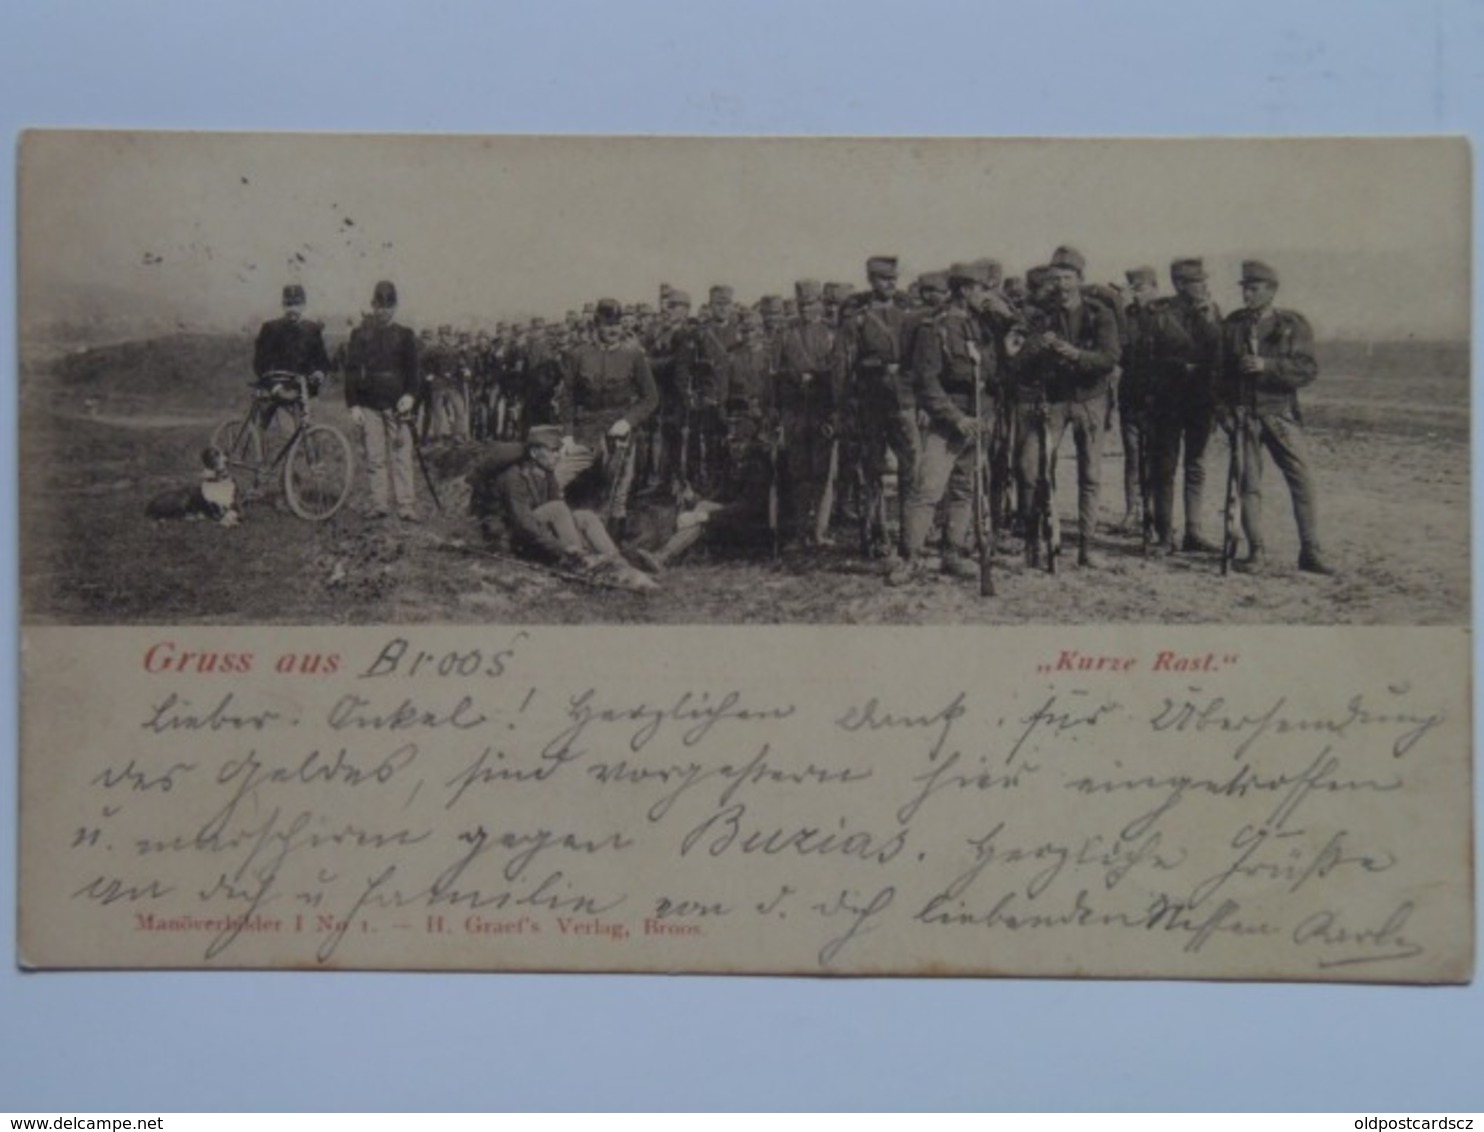 Gruss aus Broos
„Kurze Rast."
Lieber Onkel! Herzlichen Dank für Übersendung
des Geldes, sind vorgestern hier eingetroffen
u. marschiren gegen Buzias. Herzliche Grüße
an dich u Familie von d. dich liebenden Neffen Karl
Manöverbilder I No 1. — H. Graef's Verlag, Broos.
delcampe.net
oldpostcardscz